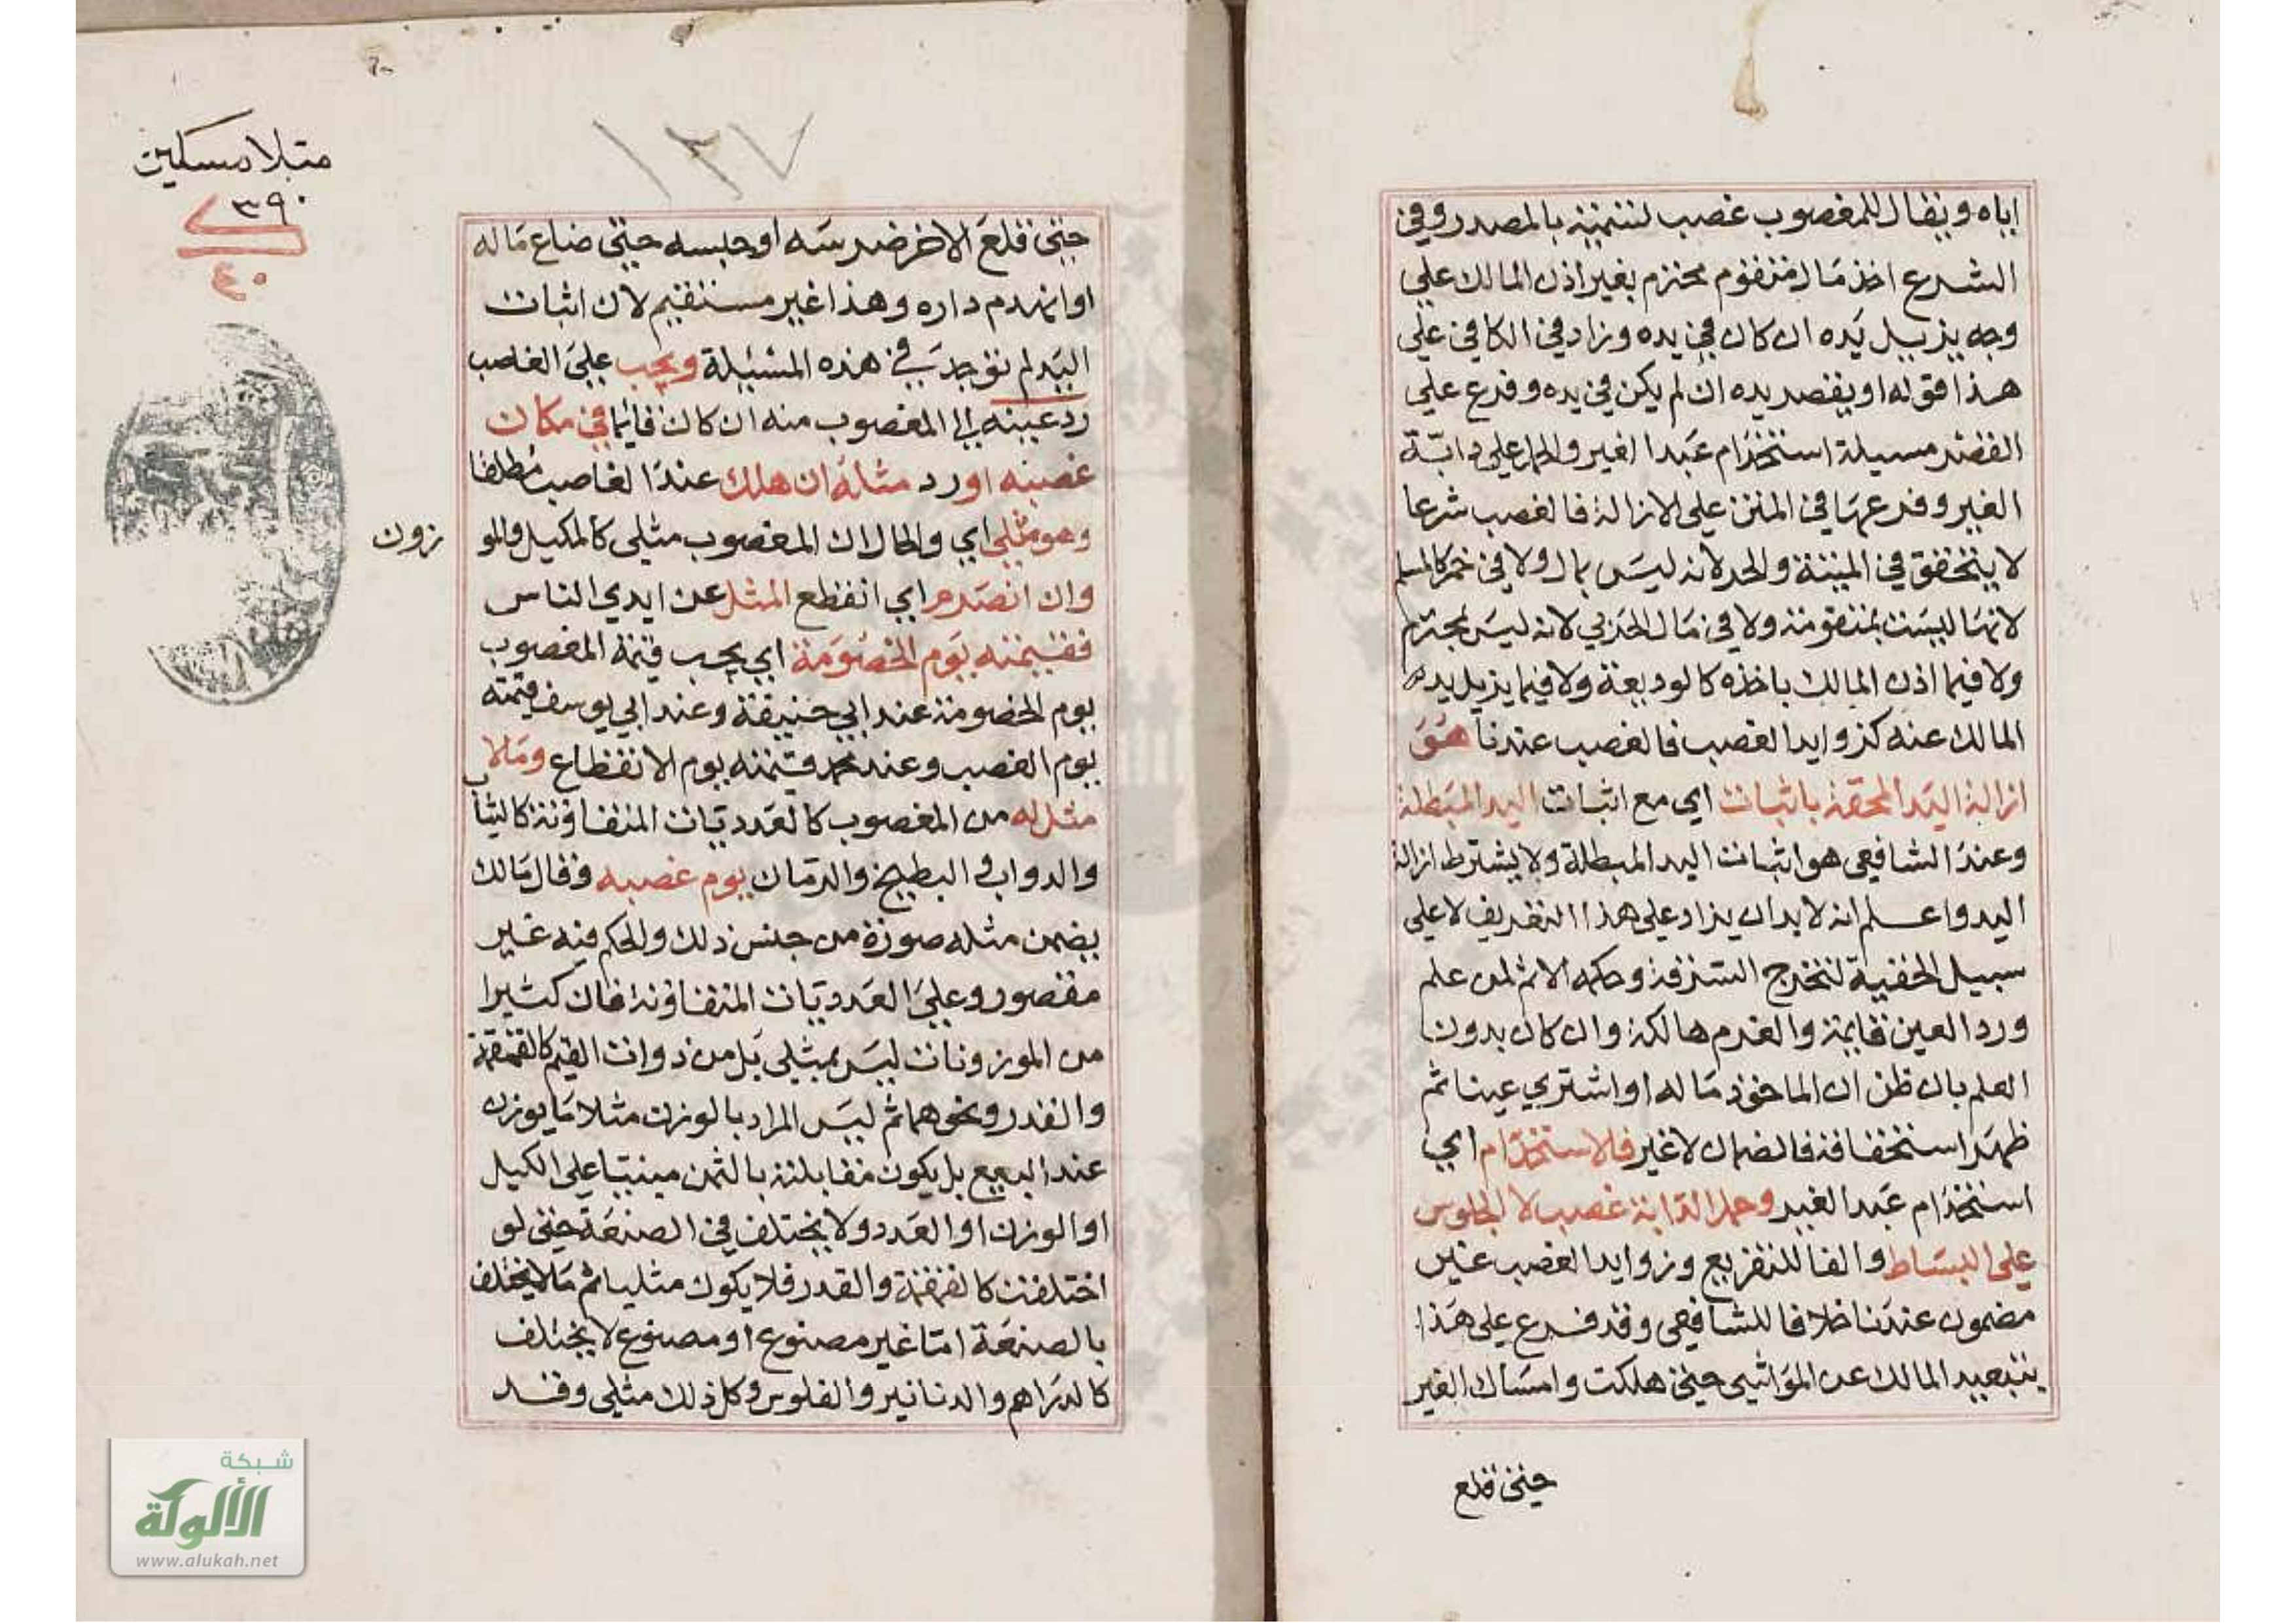 اياه ويقال للمغصوب غصب لتسميته بالمصدر وفي
الشرع اخذ مال متقوم محترم بغير اذن المالك علي
وجه يزيل يده ان كان في يده وزاد في الكافي علي
هذا قوله او يقصر يده ان لم يكن في يده وفرع علي
القصر مسيلة استخدام عبد الغير والحمل علي دابة
الغير وفرعها في المتن علي الازالة فالغصب شرعا
لا يتحقق في الميتة والحر لانه ليس بمال ولا في خمر المسلم
لانها ليست بمتقومة ولا في مال الحربي لانه ليس بمحترم
ولا فيما اذن المالك باخذه كالوديعة ولا فيما يزيل يد
المالك عنه كزوايد الغصب فالغصب عندنا هو
ازالة اليد المحقة باثبات اي مع اثبات اليد المبطلة
وعند الشافعي هو اثبات اليد المبطلة ولا يشترط ازالة
اليد واعلم انه لا بد ان يزاد علي هذا التعريف لا علي
سبيل الخفية لتخرج السرقة وحكمه الاثم لمن علم
ورد العين قايمة والغرم هالكة وان كان بدون
العلم بان ظن ان الماخوذ ماله او اشتري عينا ثم
ظهر استحقاقه فالضمان لا غير فالاستخدام اي
استخدام عبد الغير وحمل الدابة غصب لا الجلوس
علي البساط والفا للتفريع وزوايد الغصب غير
مضمون عندنا خلافا للشافعي وقد فرع علي هذا
بتبعيد المالك عن المواشي حتي هلكت وامساك الغير
حتي قلع
١٣٧
متبلا مسكين
٣٩٠
٤٠
حتي قلع الاخر ضرسه او حبسه حتي ضاع ماله
او انهدم داره وهذا غير مستقيم لان اثبات
اليد لم توجد في هذه المسئيلة ويجب علي الغاصب
رد عينه الي المغصوب منه ان كان قائما في مكان
غصبه او رد مثله ان هلك عند الغاصب مطلقا
وهو مثلي اي والحال ان المغصوب مثلي كالمكيل والمو
زون
وان انصرم اي انقطع المثل عن ايدي الناس
فقيمته يوم الخصومة اي يجب قيمة المغصوب
يوم الخصومة عند ابي حنيفة وعند ابي يوسف قيمته
يوم الغصب وعند محمد قيمته يوم الانقطاع ومالا
مثل له من المغصوب كالعدديات المتفاوتة كالثياب
والدواب والبطيخ والرمان يوم غصبه وقال مالك
يضمن مثله صورة من جنس ذلك والحكم فيه غير
مقصور وعلي العدديات المتفاوتة فان كثيرا
من الموزونات ليس بمثلي بل من ذوات القيم كالقمقمة
والقدر ونحوهما ثم ليس المراد بالوزن مثلا ما يوزن
عند البيع بل يكون مقابلته بالثمن مبنيا علي الكيل
او الوزن او العدد ولا يختلف في الصنعة حتي لو
اختلفت كالقمقمة والقدر فلا يكون مثليا ثم ما لا يختلف
بالصنعة اما غير مصنوع او مصنوع لا يختلف
كالدراهم والدنانير والفلوس وكل ذلك مثلي وقد
شبكة
الألوكة
www.alukah.net